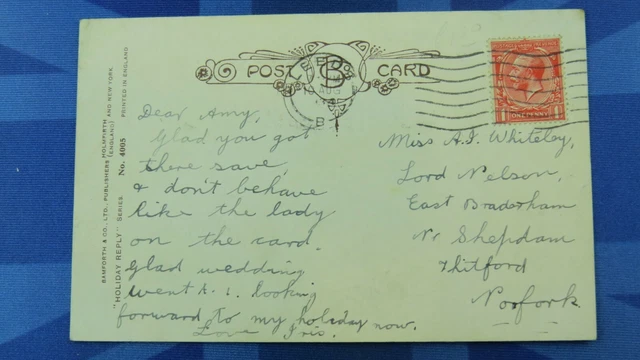 BAMFORTH & CO., LTD., PUBLISHERS HOLMFIRTH (ENGLAND) AND NEW YORK.
"HOLIDAY REPLY" SERIES No. 4005 PRINTED IN ENGLAND
POST CARD
LEEDS
AUG
B
ONE PENNY
Dear Amy,
Glad you got
there save,
& don't behave
like the lady
on the card.
Glad wedding
went looking
forward to my holiday now.
Love Iris.
Miss A.J. Whiteley,
Lord Nelson,
East Bradenham
Nr Shepdam
Thitford
Norfork